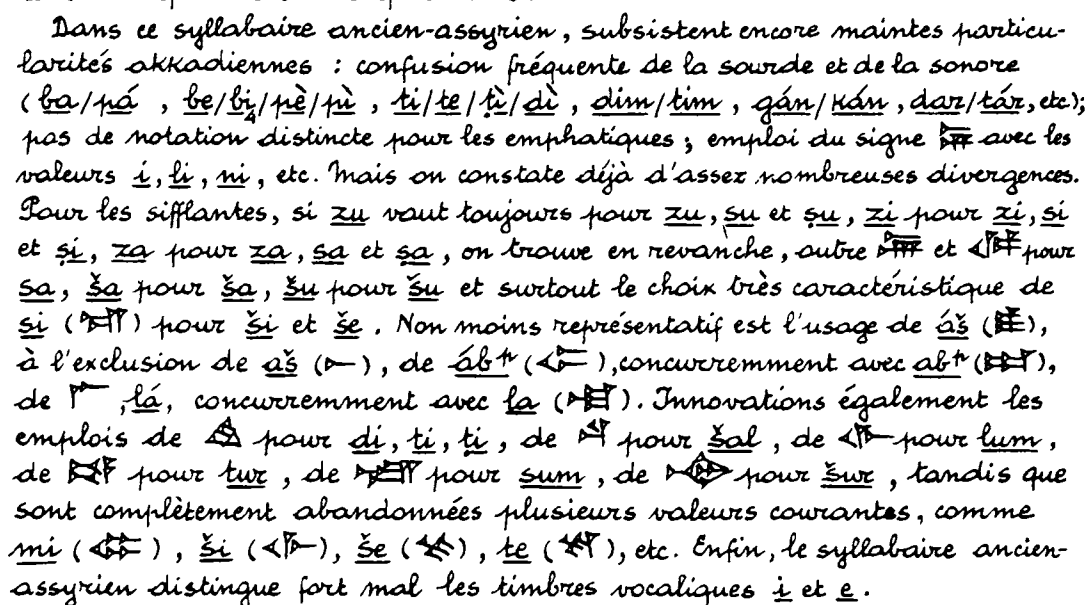 Dans ce syllabaire ancien-assyrien, subsistent encore maintes particu-
larités akkadiennes : confusion fréquente de la sourde et de la sonore
(ba/pá, be/bi₄/pè/pì, ti/te/ṭì/dì, dim/tim, gán/kán, dar/tár, etc);
pas de notation distincte pour les emphatiques ; emploi du signe 𒉌 avec les
valeurs i, li, ni, etc. Mais on constate déjà d'assez nombreuses divergences.
Pour les sifflantes, si zu vaut toujours pour zu, su et ṣu, zi pour zi, si
et ṣi, za pour za, sa et ṣa, on trouve en revanche, outre et pour
sa, ša pour ša, šu pour šu et surtout le choix très caractéristique de
si (𒋛) pour ši et še. Non moins représentatif est l'usage de áš (𒀾),
à l'exclusion de aš (𒀸), de áb⁺ᵖ (𒀖), concurremment avec ab⁺ᵖ (𒀊),
de 𒇲, lá, concurremment avec la (𒆷). Innovations également les
emplois de pour di, ti, ṭi, de 𒊩 pour šal, de pour lum,
de pour tur, de pour sum, de pour šur, tandis que
sont complètement abandonnées plusieurs valeurs courantes, comme
mi (𒈪), ši (𒅆), še (𒊺), te (𒋼), etc. Enfin, le syllabaire ancien-
assyrien distingue fort mal les timbres vocaliques i et e.